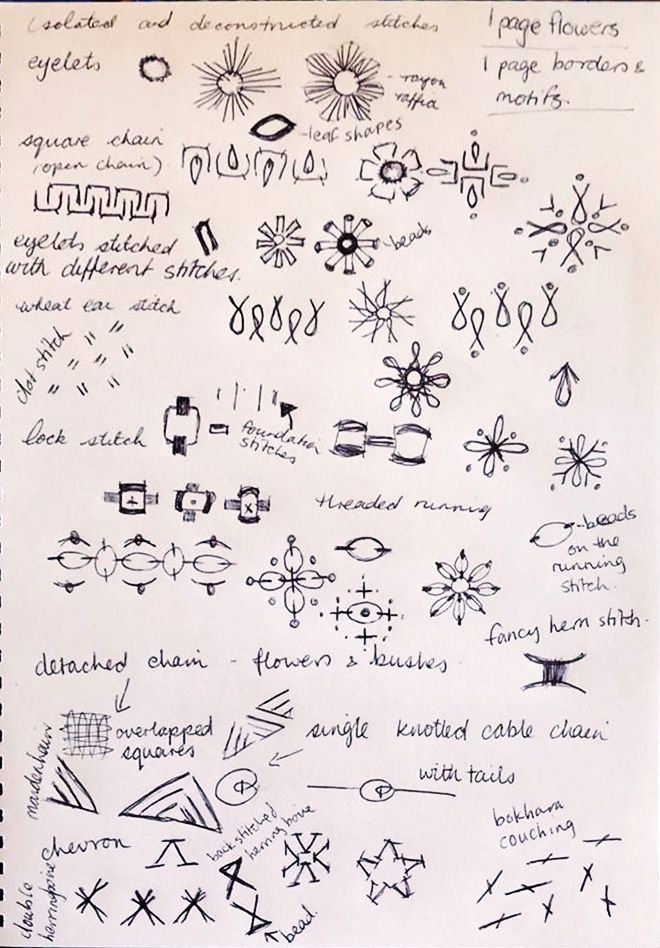 isolated and deconstructed stitches
1 page flowers
1 page borders &
motifs.
eyelets
- rayon
raffia
- leaf shapes
square chain
(open chain)
eyelets stitched
with different stitches.
- beads
wheat ear stitch
dot stitch
lock stitch
foundation
stitches
threaded running
- beads
on the
running
stitch.
fancy hem stitch.
detached chain - flowers & bushes
overlapped
squares
single knotted cable chain
maidenhair
with tails
chevron
back stitched
herring bone
bokhara
couching
double
herringbone
bead.